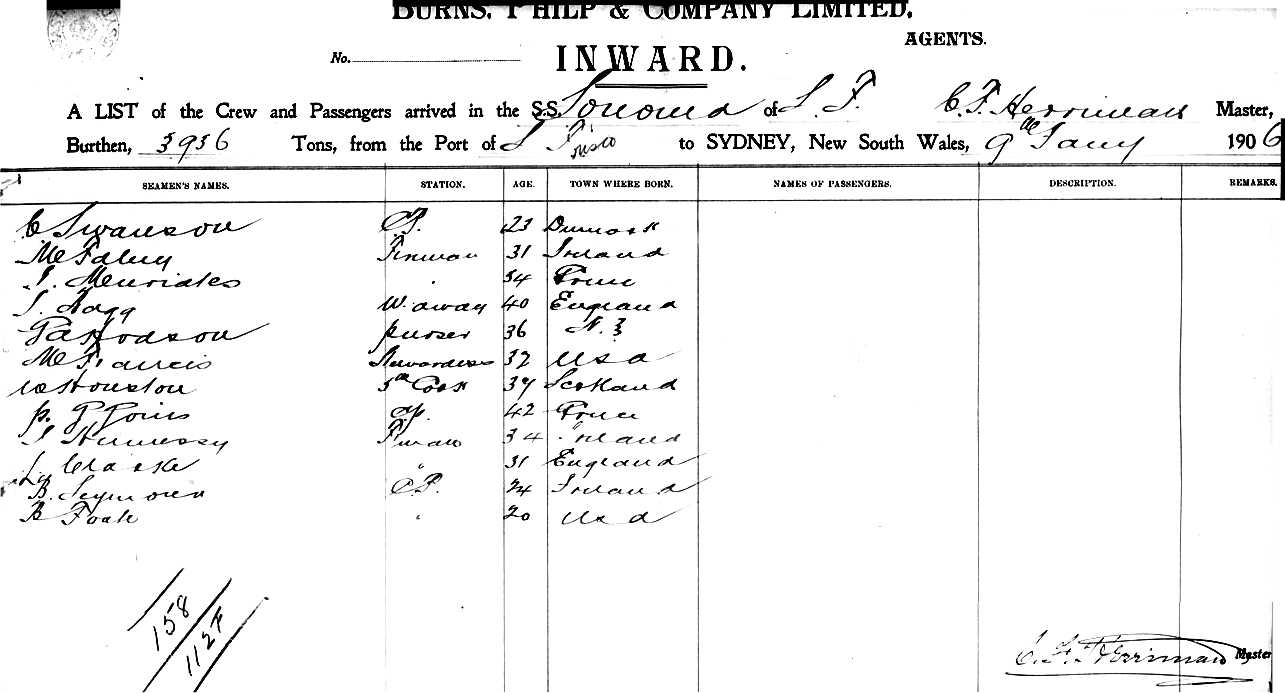 BURNS, PHILP & COMPANY LIMITED,
AGENTS.
No. INWARD.
A LIST of the Crew and Passengers arrived in the S.S. Sonoma of S. F. C. F. Herriman Master,
Burthen, 3936 Tons, from the Port of S Frisco to SYDNEY, New South Wales, 9th Jany 1906
SEAMEN'S NAMES. STATION. AGE. TOWN WHERE BORN. NAMES OF PASSENGERS. DESCRIPTION. REMARKS.
C Swanson C.P. 23 Denmark
Fireman 31 Ireland
34
W. away 40 England
Hodson purser 36 N. Z
M Francis Stewardess 32 USA
W Houston 5th Cook 39 Scotland
P. 42
J Hennessy Fireman 34 Ireland
J Clarke " 31 England
B. Seymour C.P. 24 Ireland
B 20 USA
158
112F
C. F. Herriman Master